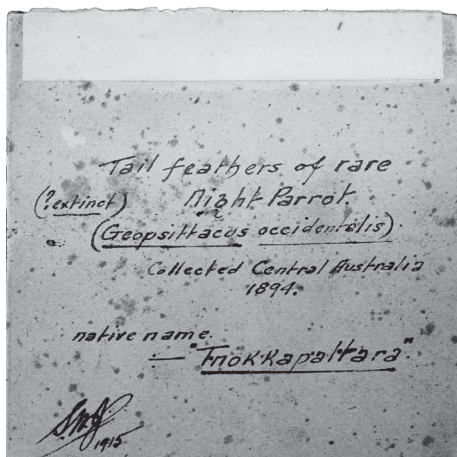 Tail feathers of rare
(?extinct) Night Parrot.
(Geopsittacus occidentalis).
Collected Central Australia
1894.
native name.
— "Tnokkapaltara".
1915